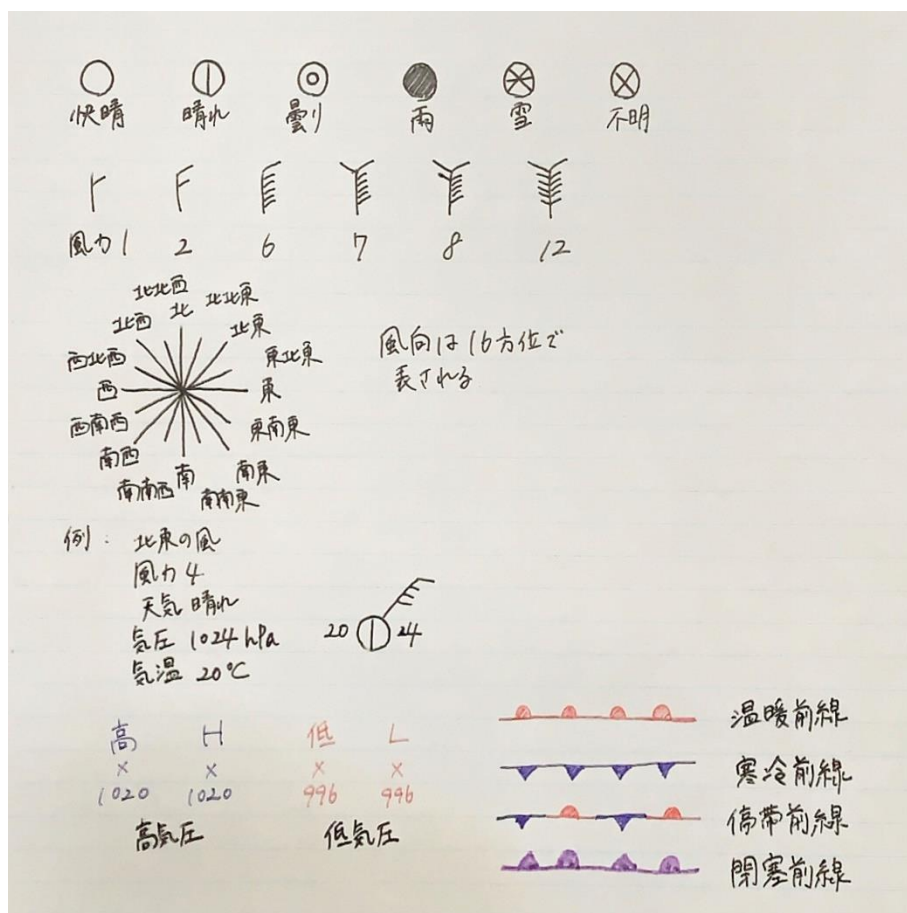 快晴 晴れ 曇り 雨 雪 不明
風力1 2 6 7 8 12
北北西 北 北北東
北西 北東
西北西 東北東
西 東
西南西 東南東
南西 南東
南南西 南 南南東
風向は16方位で
表される
例: 北東の風
風力4
天気 晴れ
気圧 1024 hPa
気温 20℃
20 24
高 H 低 L
× × × ×
1020 1020 996 996
高気圧 低気圧
温暖前線
寒冷前線
停帯前線
閉塞前線